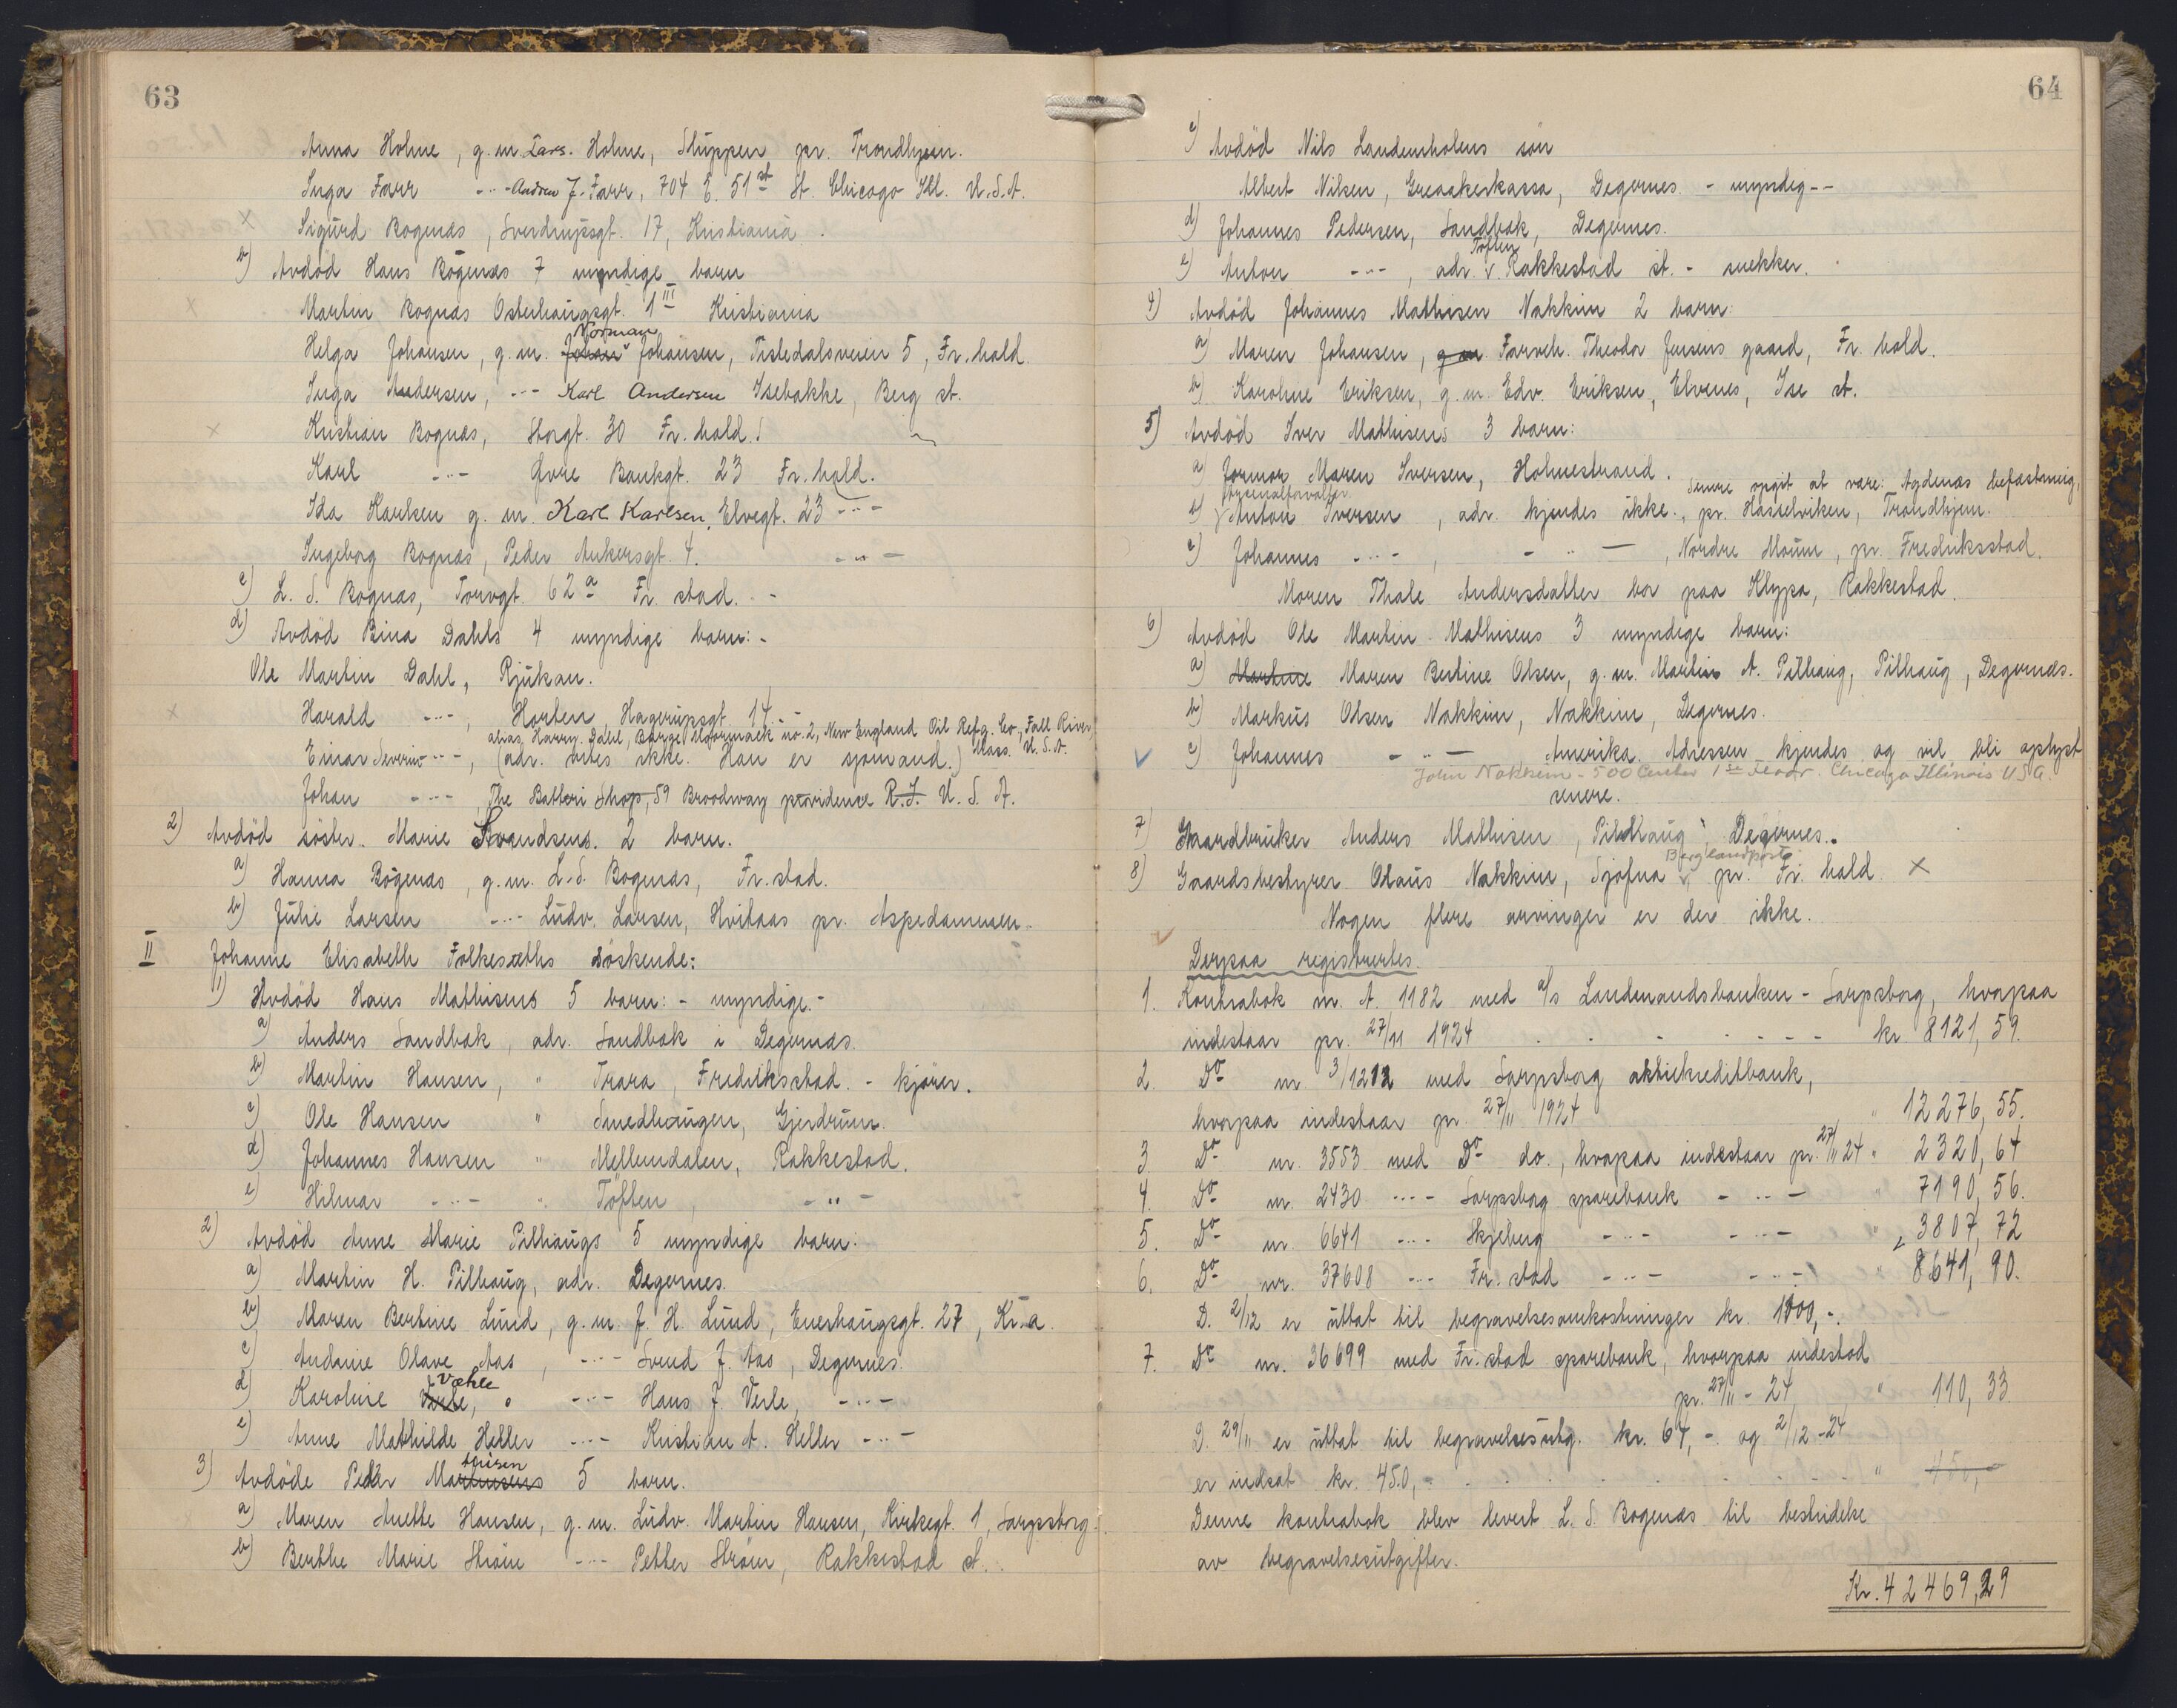 63
Anna Holme, g.m. Lars. Holme, Sluppen pr. Trondhjem.
Inga Farr -"- Andrew J. Farr, 704 E. 51st St. Chicago Ill. U.S.A.
x Sigurd Bognæs, Sverdrupsgt. 17, Kristiania.
b) Avdöd Hans Bögenæs 7 myndige barn
x Martin Bognæs Osterhaugsgt. 1 III Kristiania
Norman
Helga Johansen, g.m. Johan Johansen, Tistedalsveien 5, Fr.hald.
Inga Andersen, -"- Karl Andersen Isebakke, Berg st.
x Kristian Bognæs, Storgt. 30 Fr.hald.
Karl -"- Øvre Bankgt. 23 Fr.hald.
Ida Karlsen g.m. Karl Karlsen, Elvegt. 23 -"-
Ingeborg Bognæs, Peder Ankersgt. 4. -"-
c) L.S. Bognæs, Torvgt. 62a Fr.stad. -
d) Avdöd Bina Dahls 4 myndige barn:-
Ole Martin Dahl, Rjukan.
x Harald -"-, Horten, Hagerupsgt. 14 -
alias Harry Dahl, Barge Moormack no. 2, New England Oil Refg. Co., Fall River,
Einar Severin -"-, (adr. vites ikke. Han er sjömand.) Mass. U.S.A.
Johan -"- The Batteri Shop, 59 Broodway providence R.J. U.S.A.
2) Avdöd söster Marie Svendsens 2 barn.
a) Hanna Bögenæs, g.m. L.S. Bogenæs, Fr.stad.
b) Julie Larsen -"- Ludv. Larsen, Hvitaas pr. Aspedammen.
II Johanne Elisabeth Folkesæths söskende:
1) Avdöd Hans Mathisens 5 barn:- myndige.-
a) Anders Sandbæk, adr. Sandbæk i Degernæs.
b) Martin Hansen, " Trara, Fredrikstad. - kjörer.
c) Ole Hansen " Smedhaugen, Gjerdrum.
d) Johannes Hansen " Mellemdalen, Rakkestad.
e) Hilmar -"- " Töften, -"-
2) Avdöd Anne Marie Pilhaugs 5 myndige barn:
a) Martin H. Pilhaug, adr. Degernes.
b) Maren Bertine Lund, g.m. J. H. Lund, Enerhaugsgt. 27, Kr.a.
c) Andrine Olave Aas, -"- Svend J. Aas, Degernes.
Væhle
d) Karoline Værle, -"- Hans J. Verle, -"-
e) Anne Mathilde Heller -"- Kristian A. Heller -"-
thisen
3) Avdöde Peder Marthinsens 5 barn.
a) Maren Anette Hansen, g.m. Ludv. Martin Hansen, Kirkegt. 1, Sarpsborg.
b) Berthe Marie Ström -"- Petter Ström, Rakkestad st.
64
c) Avdöd Nils Landemholens sön
Albert Nilsen, Greaakerkassa, Degernes - myndig --
d) Johannes Pedersen, Sandbæk, Degernes.
Töften
e) Anton -"-, adr. v. Rakkestad st. - snekker.
4) Avdöd Johannes Mathisen Nakkim 2 barn:
a) Maren Johansen, g m Farveh. Theodor Jensens gaard, Fr.hald.
b) Karoline Eriksen, g.m. Edv. Eriksen, Elvenes, Ise st.
5) Avdöd Iver Mathisens 3 barn:
a) Jormor Maren Iversen, Holmestrand.
Arsenalforvalter Senere opgit at være: Agdenæs befæstning,
b) Anton Iversen, adr. kjendes ikke., pr. Hasselviken, Trondhjem.
c) Johannes -"-, -"-, Nordre Moum, pr. Fredrikstad.
Moren Thale Andersdatter bor paa Klypa, Rakkestad.
6) Avdöd Ole Martin Mathisens 3 myndige barn:
a) Martine Maren Bertine Olsen, g.m. Martin A. Pilhaug, Pilhaug, Degernæs.
b) Markus Olsen Nakkim, Nakkim, Degernes.
c) Johannes -"- Amerika. Adressen kjendes og vil bli oplyst
John Nakkim - 500 Center 1se Floor. Chicago Illinois USA
senere.
7) Gaardbruker Anders Mathisen, Pilhaug, Degernes.
Berglandporte
8) Gaardsbestyrer Olaus Nakkim, Sjöfna, pr. Fr.hald x
Nogen flere arvinger er der ikke.
Derpaa registrertes.
1. Kontrabok nr. A. 1182 med a/s Landmandsbanken - Sarpsborg, hvorpaa
indestaar pr. 27/11 1924 - - - kr. 8121,59.
2. Do nr. 3/1212 med Sarpsborg aktiekreditbank,
hvorpaa indestaar pr. 27/11 1924 " 12276,55.
3. Do nr. 3553 med Do do., hvorpaa indestaar pr. 27/11 24 " 2320,64
4. Do nr. 2430 -"- Sarpsborg sparebank -"- " 7190,56.
5. Do nr. 6641 -"- Skjeberg -"- -"- " 3807,72
6. Do nr. 37608 -"- Fr.stad -"- -"- " 8641,90.
D. 2/12 er uttat til begravelsesomkostninger kr. 1000,-.
7. Do nr. 36699 med Fr.stad sparebank, hvorpaa indestod
pr. 27/11 - 24 " 110,33
D. 29/11 er uttat til begravelsesutg. kr. 64,-. og 2/12 -24
er indsat kr. 450,- - - - " 450,-
Denne kontrabok blev levert L.S. Bogenæs til bestridelse
av begravelsesutgifter.
Kr. 42469,29